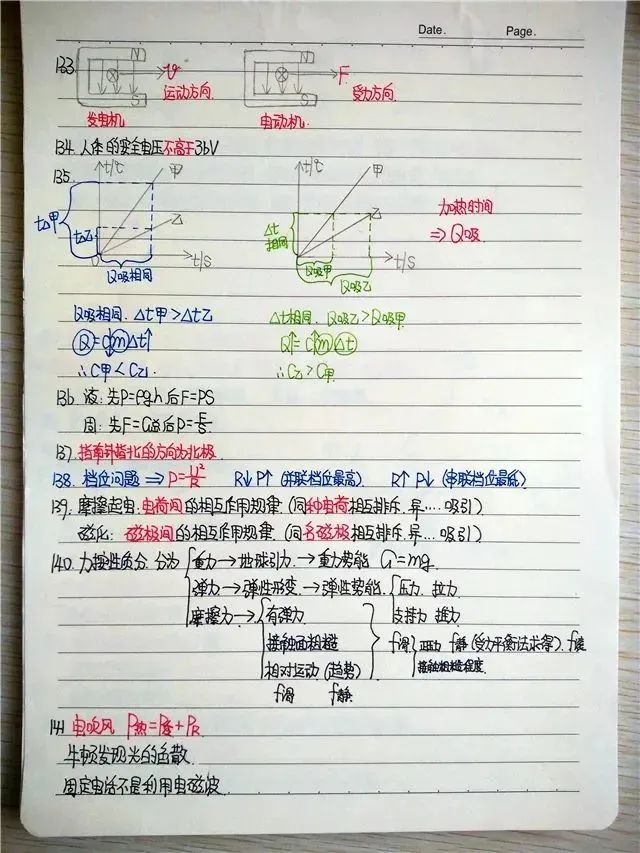 Date. Page.
133. N S v 运动方向. N S F 受力方向.
发电机 电动机.
134. 人体的安全电压不高于36V
135. t/℃ 甲 乙 t/s t△甲 t△乙 0 Q吸相同 t/℃ 甲 乙 t/s Δt相同 Q吸甲 Q吸乙 加热时间
⇒ Q吸
Q吸相同. Δt甲>Δt乙 Δt相同. Q吸乙>Q吸甲.
Q=c↓mΔt↑ Q↑=c↑mΔt
∴C甲<C乙. ∴C乙>C甲.
136. 液: 先P=ρgh后F=PS
固: 先F=G总后P=F/S.
137. 指南针指北的方向为北极
138. 档位问题 ⇒ P=U²/R R↓P↑ (并联档位最高) R↑ P↓ (串联档位最低)
139. 摩擦起电: 电荷间的相互作用规律. (同种电荷相互排斥. 异....吸引)
磁化: 磁极间的相互作用规律. (同名磁极相互排斥. 异....吸引)
140. 力按性质分. 分为 重力→地球引力.→重力势能 G=mg.
弹力→弹性形变.→弹性势能. 压力. 拉力.
摩擦力→ 有弹力. 支持力 推力.
接触面粗糙 f滑 正压力 f静 (受力平衡法求得).
相对运动 (趋势) 接触粗糙程度.
f滑 f静.
141 电吹风 P热=P总+PR
牛顿发现光的色散.
固定电话不是利用电磁波.